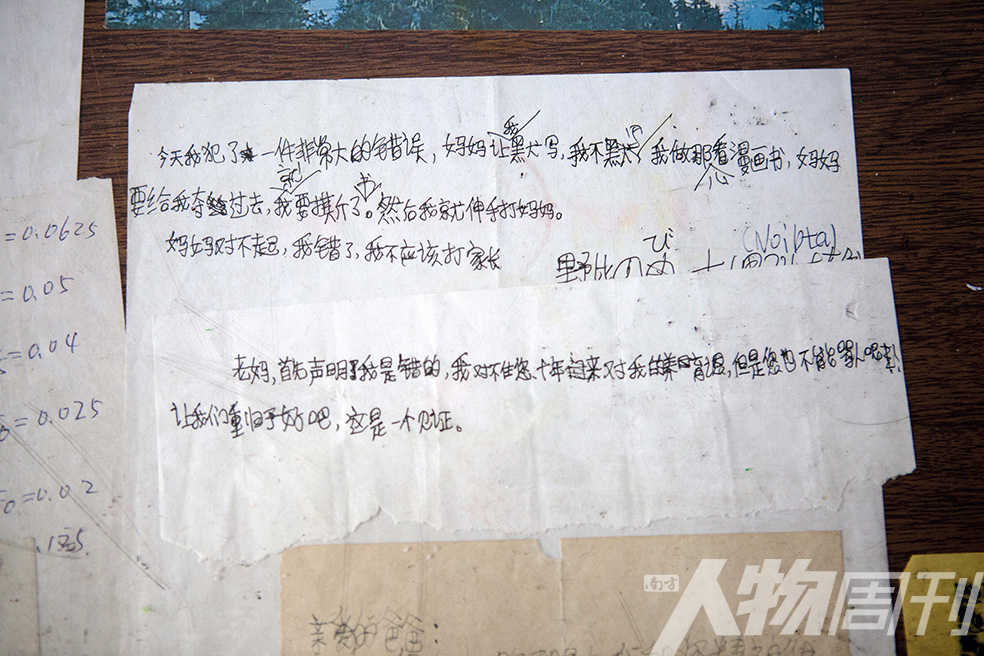 今天我犯了一件非常大的错误，妈妈让我黑犬写，我不黑犬，我做那看心漫画书，妈妈
要给我夺过去，我就要撕斤书了。然后我就伸手打妈妈。
妈妈对不起，我错了，我不应该打家长
野比のび
(Noipta)
老妈，首先声明我是错的，我对不住您十年来对我的养育恩，但是您也不能
让我们重归于好吧，这是一个见证。
=0.0625
=0.05
=0.04
=0.025
=0.02
.125
亲爱的爸爸：
南方
人物周刊